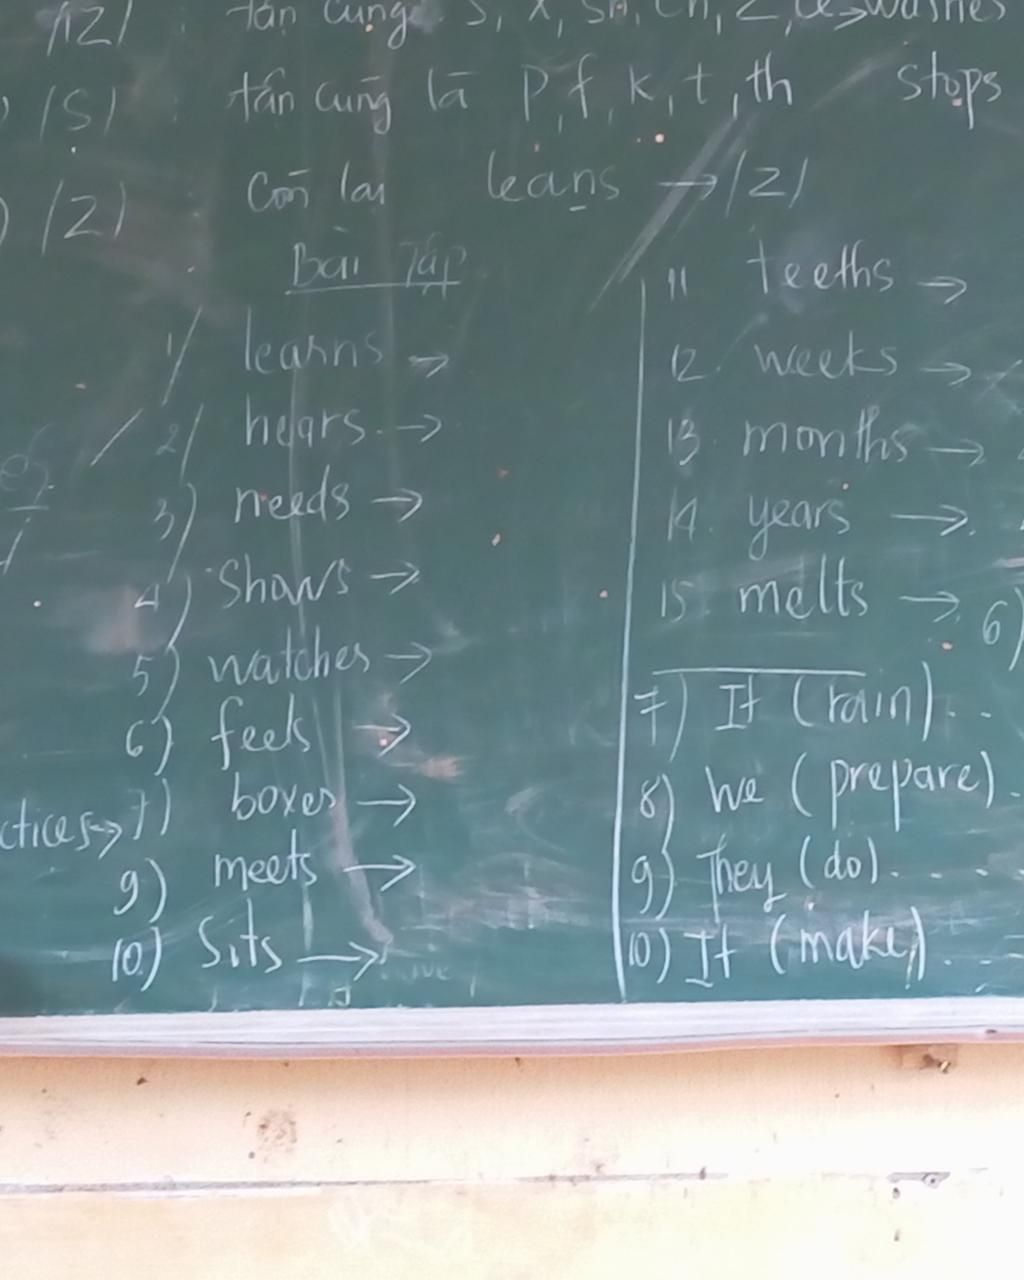 /IZ/ : tận cùng s, x, sh, ch, z, ce → washes
/S/ : tận cùng là p, f, k, t, th stops
/Z/ còn lại leans → /Z/
Bài Tập
1/ learns →
2/ hears →
3) needs →
4) shows →
5) watches →
6) feels →
7) boxes →
9) meets →
10) Sits →
11 teeths →
12. weeks →
13. months →
14. years →
15. melts →
6)
7) It (rain)...
8) We (prepare).
9) They (do)....
10) It (make)...
ctices →